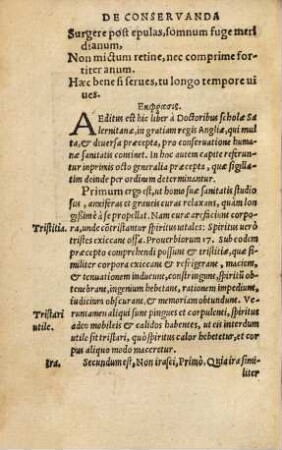 DE CONSERVANDA
Surgere post epulas, somnum fuge meri
dianum,
Non mictum retine, nec comprime for
titer anum.
Hæc bene si serues, tu longo tempore ui
ues.
Εκφρασις.
AEditus est hic liber à Doctoribus scholæ Sa
lernitanæ, in gratiam regis Angliæ, qui mul
ta, & diuersa præcepta, pro conseruatione huma
næ sanitatis continet. In hoc autem capite referun
tur inprimis octo generalia præcepta, quæ sigilla
tim deinde per ordinem determinantur.
Primum ergo est, ut homo suæ sanitatis studio
sus, anxiferas et graueis curas relaxans, quàm lon
gissimè à se propellat. Nam curæ arefaciunt corpo
Tristitia. ra, unde cōtristantur spiritus uitales: Spiritus uerò
tristes exiccant ossa. Prouerbiorum 17. Sub eodem
præcepto comprehendi possunt & tristitiæ, quæ si
militer corpora exiccant & refrigerant, maciem,
& tenuationem inducunt, constringunt, spiritū ob
tenebrant, ingenium hebetant, rationem impediunt,
iudicium obscurant, & memoriam obtundunt. Ve
Tristari rumtamen aliqui sunt pingues et corpulenti, spiritus
utile. adeo mobileis & calidos habentes, ut eis interdum
utile sit tristari, quò spiritus calor hebetetur, et cor
pus aliquo modo maceretur.
Ira. Secundum est, Non irasci, Primò. Quia ira simi
liter